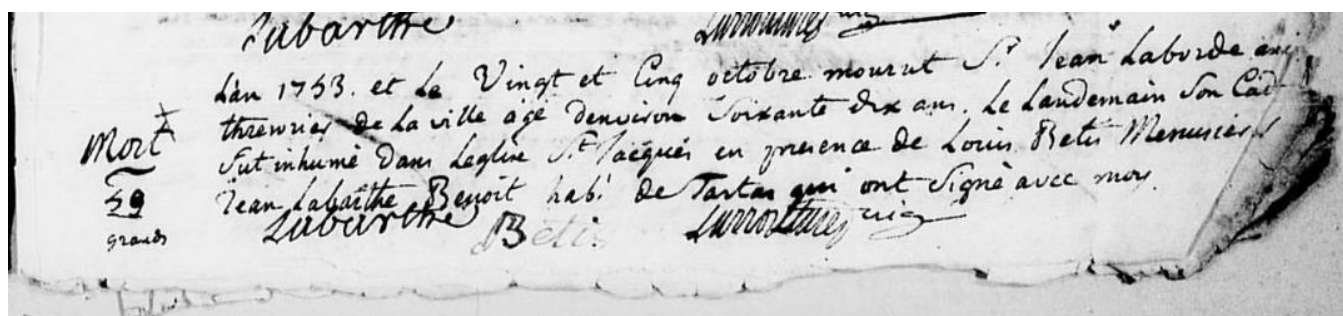 Labarthe
L'an 1753. et Le Vingt et Cinq octobre mourut Sr. Jean Laborde anc
de La ville agé denviron Soixante dix ans. Le Landemain Son Cad
Mort
fut inhumé Dans Leglise St. Jacques en presence de Louis Betis Menusier
59
Jean Labarthe Benoit hab! de Tartas qui ont Signé avec moy
grands
Labarthe Betis